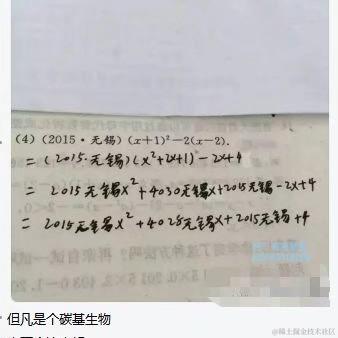 (4)(2015·无锡)(x+1)²-2(x-2).
=(2015·无锡)(x²+2x+1)-2x+4
=2015无锡x²+4030无锡x+2015无锡-2x+4
=2015无锡x²+4028无锡x+2015无锡+4
但凡是个碳基生物
@稀土掘金技术社区